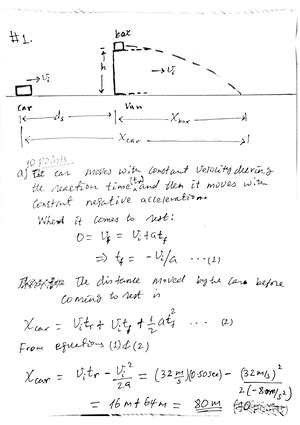 #1.
box
h
→ Vi
→ Vi
car
van
ds
Xbox
Xcar
10 points
a) The car moves with constant velocity during
the reaction time (tr) and then it moves with
constant negative acceleration.
When it comes to rest:
0 = Vf = Vi + atf
⇒ tf = -Vi/a ... (1)
The distance moved by the car before
coming to rest is
Xcar = Vitr + Vitf + 1/2 atf² ... (2)
From equations (1) & (2)
Xcar = Vitr - Vi²/2a = (32 m/s)(0.50sec) - (32 m/s)²/2(-8.0m/s²)
= 16m + 64m = 80m